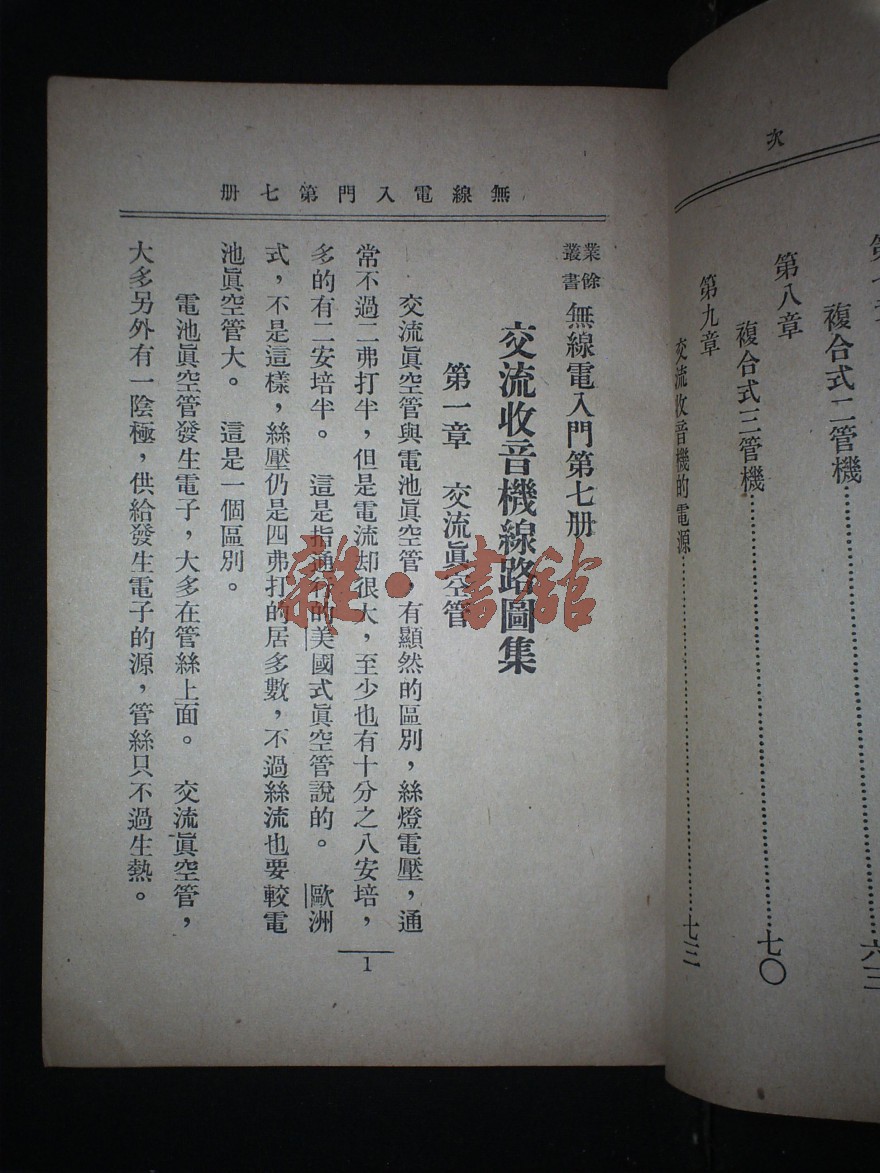 次
第八章
複合式二管機
七〇
第九章
複合式三管機
交流收音機的電源
七三
無線電入門第七册
業餘
叢書
無線電入門第七册
交流收音機線路圖集
第一章　交流眞空管
交流眞空管與電池眞空管，有顯然的區別，絲燈電壓，通
常不過二弗打半，但是電流却很大，至少也有十分之八安培，
多的有二安培半。　這是指通行的美國式眞空管說的。　歐洲
式，不是這樣，絲壓仍是四弗打的居多數，不過絲流也要較電
池眞空管大。　這是一個區別。
電池眞空管發生電子，大多在管絲上面。　交流眞空管，
大多另外有一陰極，供給發生電子的源，管絲只不過生熱。
1
雜·書舘